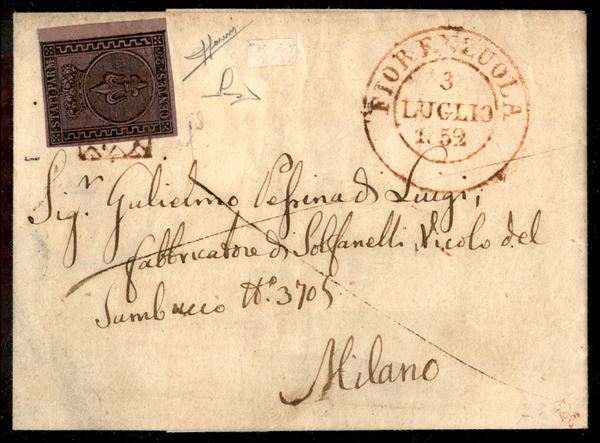 STATI PARM.
CENTES. 25
FIORENZUOLA
3
LUGLIO
1852
Sig.r Gulielmo Pessina di Luigi,
Fabbricatore di Solfanelli, Vicolo del
Sambuco N.o 3705
Milano